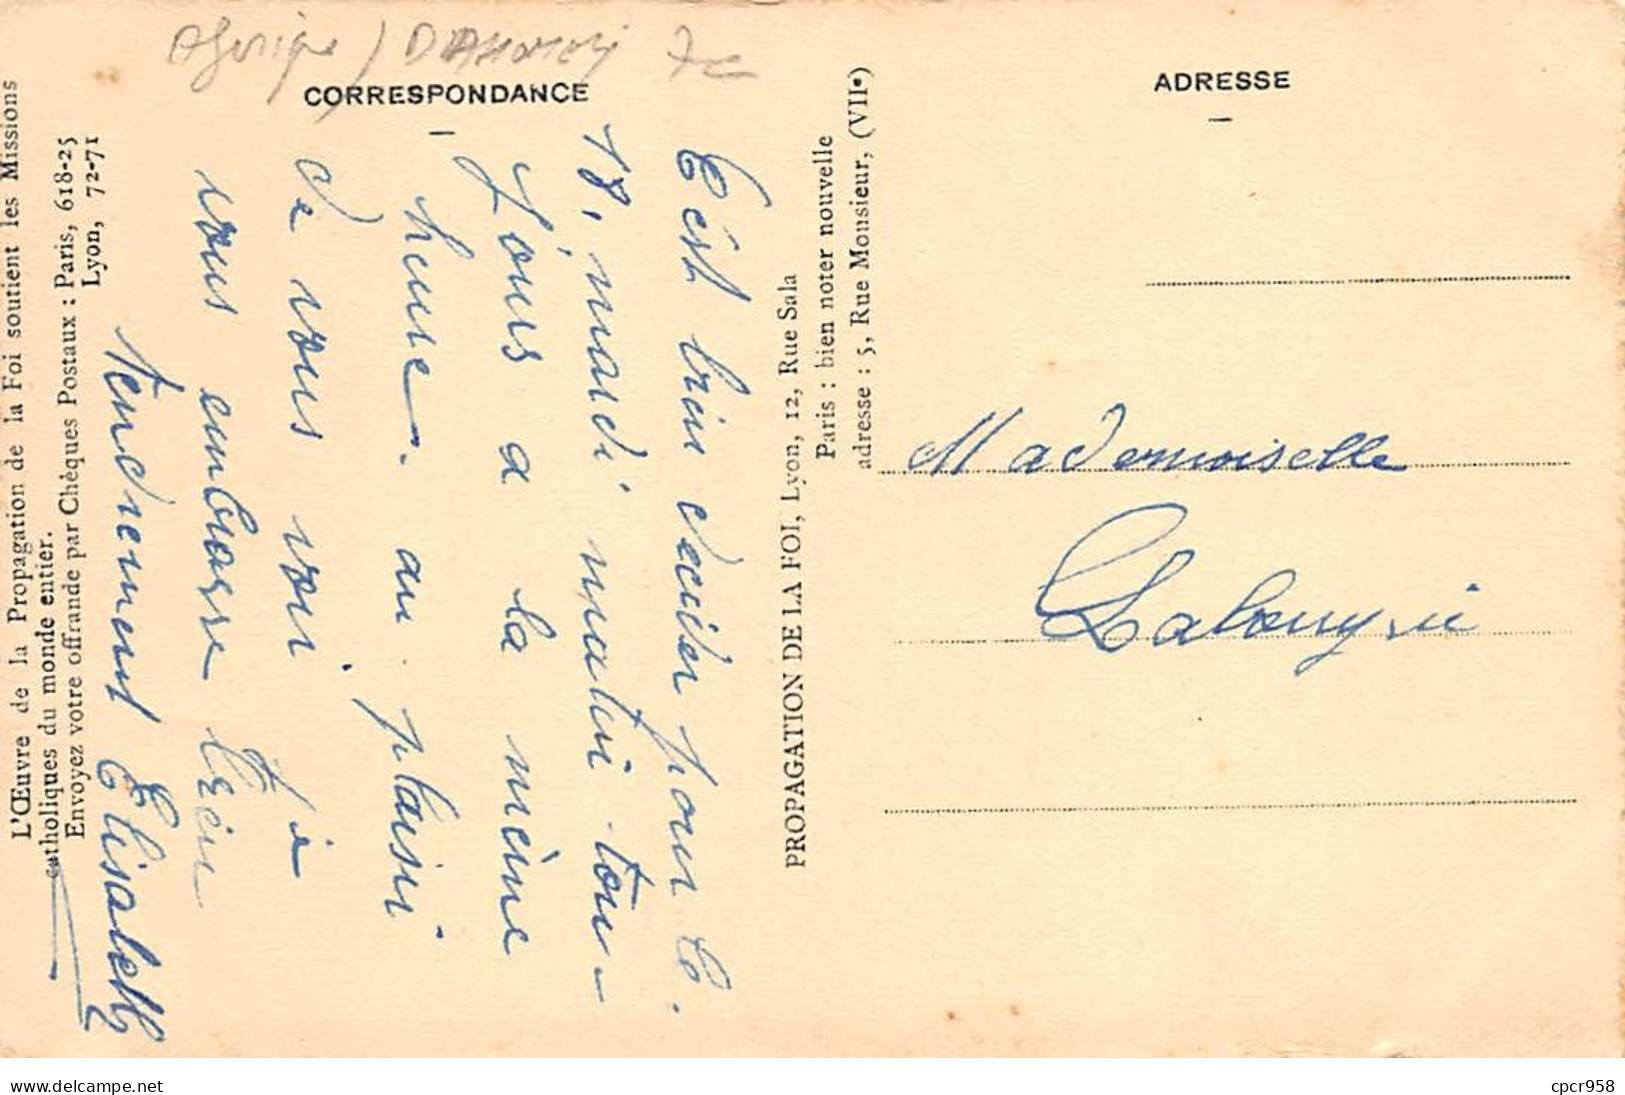 DAHOMEY
CORRESPONDANCE
C'est bien décidé pour le
18, mardi matin tou-
jours a la même
heure. au plaisir
de vous voir. Je
vous embrasse bien
tendrement Elisabeth
L'Œuvre de la Propagation de la Foi soutient les Missions
catholiques du monde entier.
Envoyez votre offrande par Chèques Postaux : Paris, 618-25
Lyon, 72-71
PROPAGATION DE LA FOI, Lyon, 12, Rue Sala
Paris : bien noter nouvelle
adresse : 5, Rue Monsieur, (VIIe)
ADRESSE
Mademoiselle
delcampe.net
cpcr958